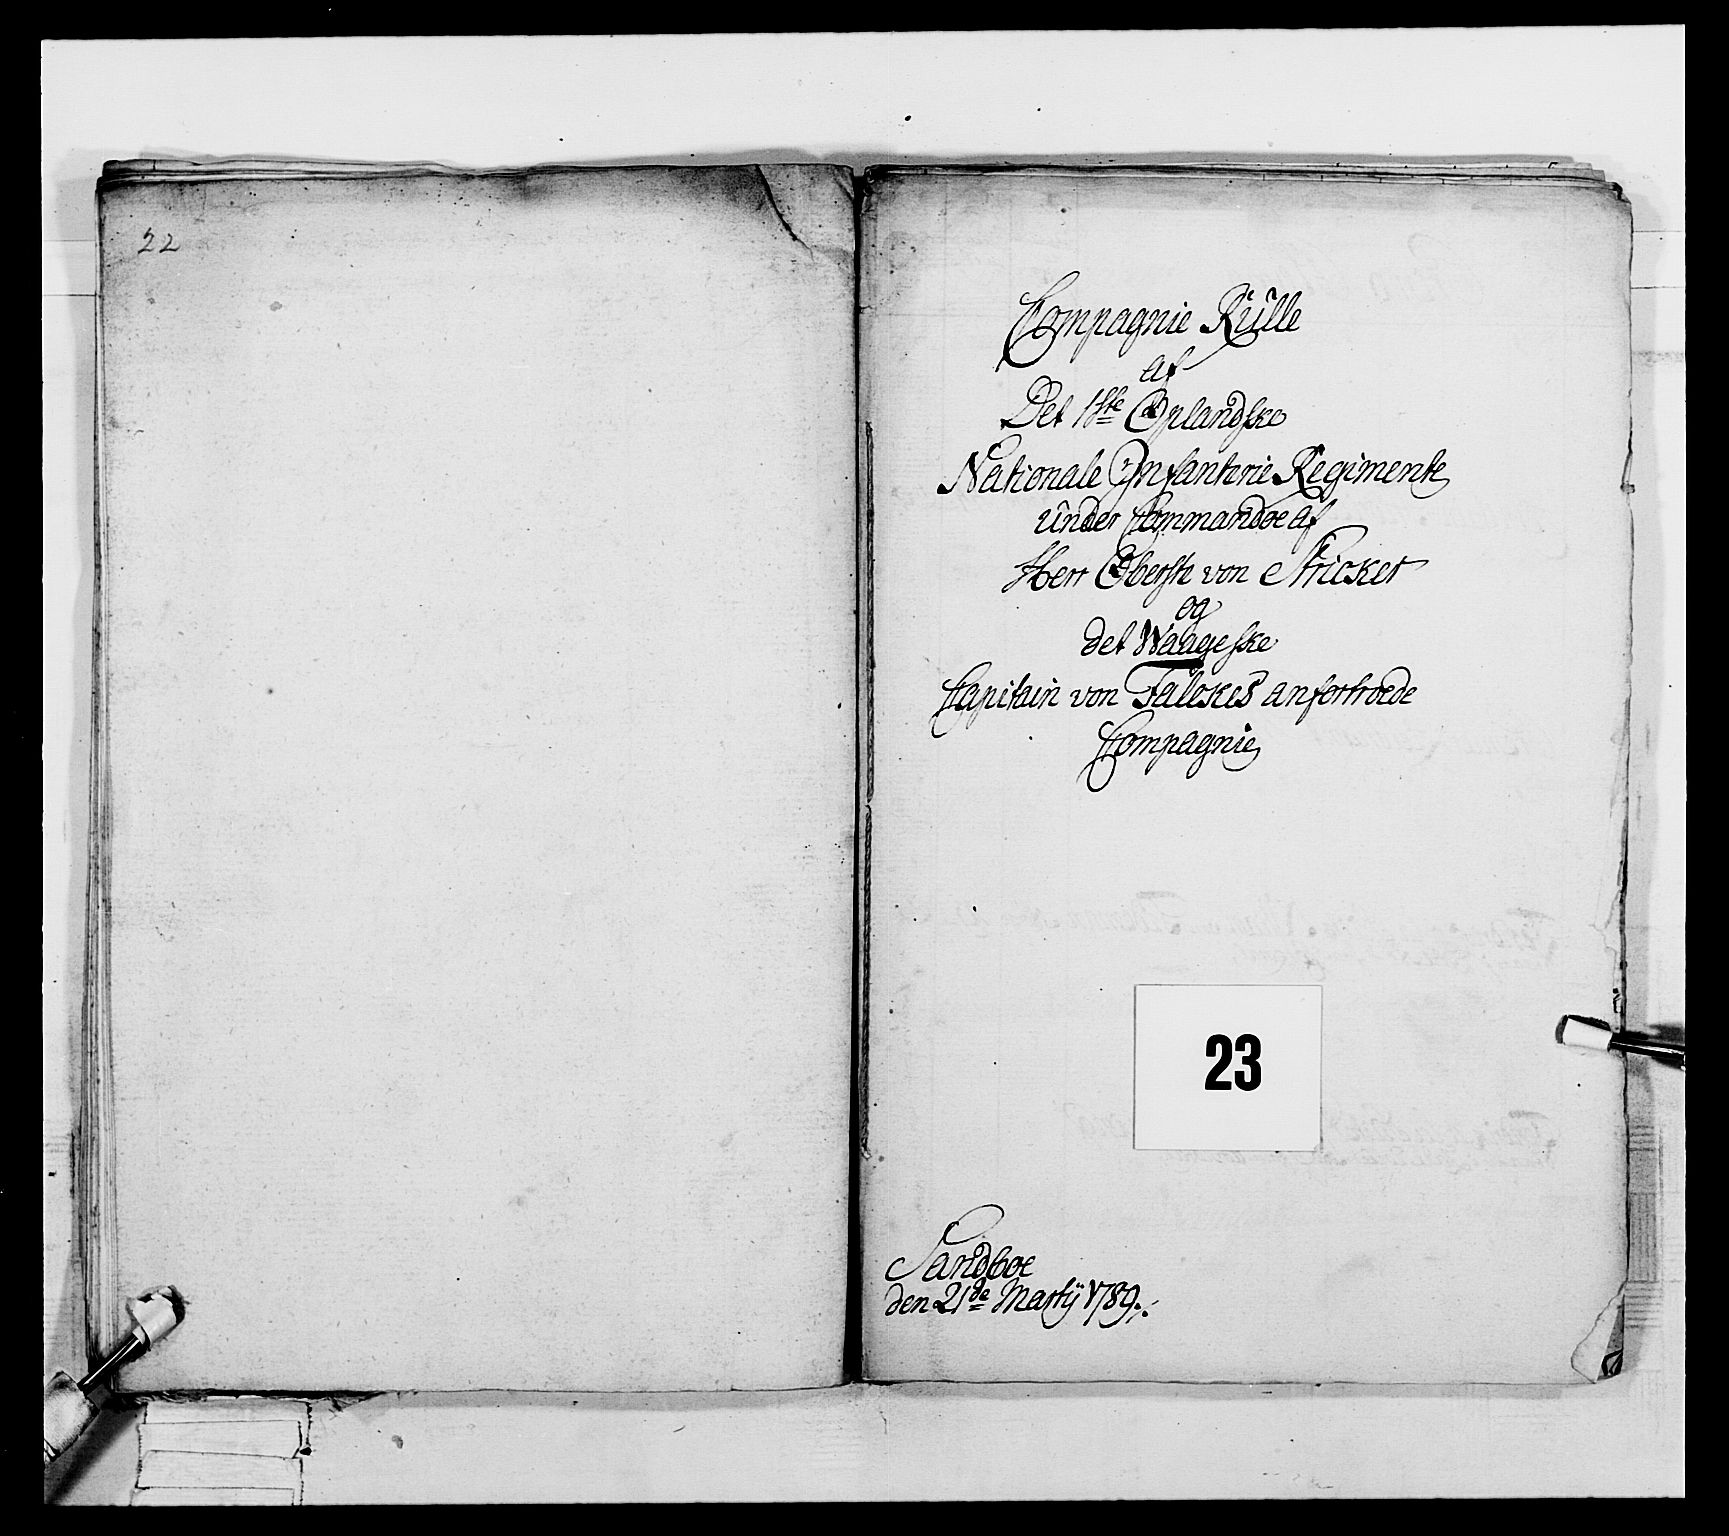 22
Compagnie Rulle
af
Det 1ste Oplandske
Nationale Infanterie Regimente
under Commandoe af
Herr Oberste von Stricker
og
det Waageske
Capitain von Falckes anfortroede
Compagnie
23
Sandboe
den 21de Martij 1789.